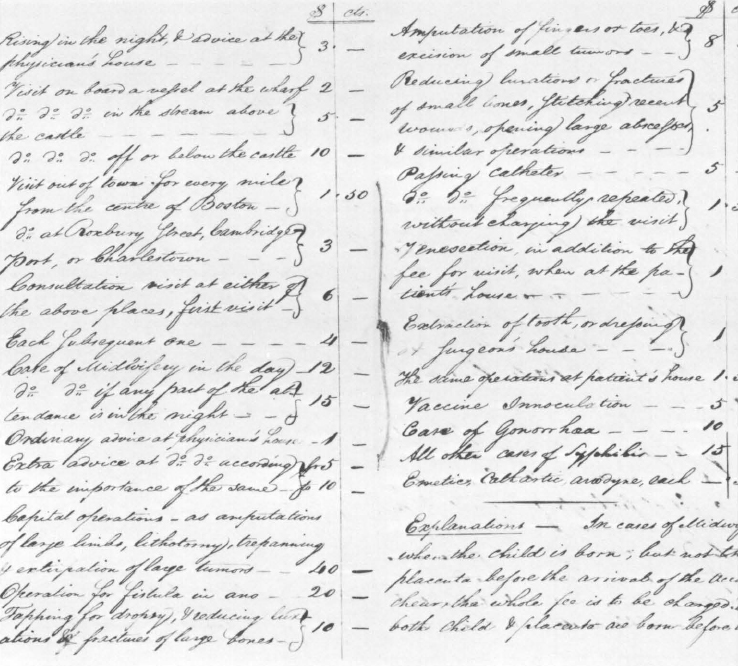 $ cts.
Rising in the night, & advice at the
physician's house — — — — 3 . —
Visit on board a vessel at the wharf 2 —
do do do in the stream above
the castle — — — — 5 —
do do do off or below the castle 10 —
Visit out of town for every mile
from the centre of Boston — 1 . 50
do at Roxbury Street, Cambridge
Port, or Charlestown — — 3 —
Consultation visit at either of
the above places, first visit — 6 —
Each subsequent one — — — 4 —
Case of Midwifery in the day — 12 —
do do if any part of the at-
tendance is in the night — — 15 —
Ordinary advice at physician's house — 1 —
Extra advice at do do according fr 5 —
to the importance of the same — to 10 —
Capital operations — as amputations
of large limbs, lithotomy, trepanning
& extirpation of large tumors — — 40 —
Operation for fistula in ano — — 20 —
Tapping for dropsy, & reducing lux-
ations & fractures of large bones — 10 —
$
Amputation of fingers or toes, &
excision of small tumors — — 8
Reducing luxations or fractures
of small bones, stitching recent
wounds, opening large abscesses
& similar operations — — — — 5
Passing Catheter — — — — 5
do do frequently repeated,
without charging the visit 1 .
Venesection, in addition to the
fee for visit, when at the pa-
tients house — — — — 1
Extraction of tooth, or dressing
surgeon's house — — — 1
The same operations at patient's house 1 .
Vaccine Innoculation — — — 5
Case of Gonorrhœa — — — 10
All other cases of Syphilis — — 15
Emetics, Cathartic, anodyne, each —
Explanations — In cases of Midwif
when the child is born, but not the
placenta before the arrival of the accou
cheur, the whole fee is to be charged.
both child & placenta are born before